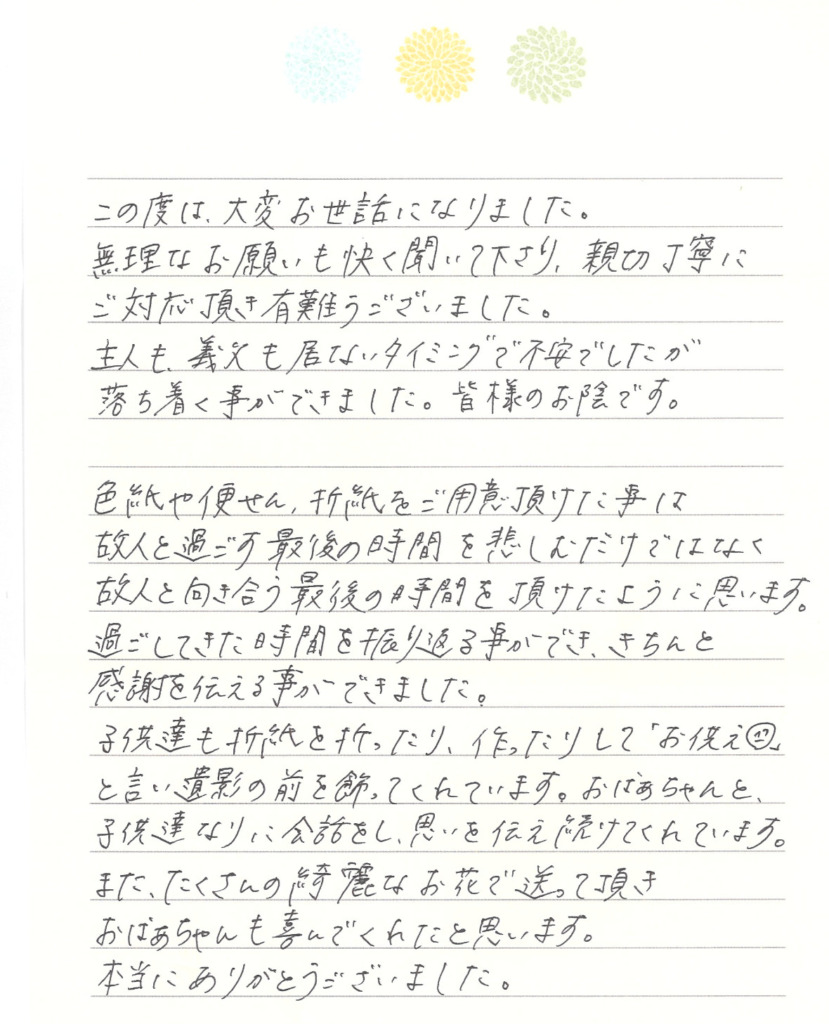 この度は、大変お世話になりました。
無理なお願いも快く聞いて下さり、親切丁寧に
ご対応頂き有難うございました。
主人も、義父も居ないタイミングで不安でしたが
落ち着く事ができました。皆様のお陰です。
色紙や便せん、折紙をご用意頂けた事は
故人と過ごす最後の時間を悲しむだけではなく
故人と向き合う最後の時間を頂けたように思います。
過ごしてきた時間を振り返る事ができ、きちんと
感謝を伝える事ができました。
子供達も折紙を折ったり、作ったりして「お供え☺」
と言い遺影の前を飾ってくれています。おばあちゃんと、
子供達なりに会話をし、思いを伝え続けてくれています。
また、たくさんの綺麗なお花で送って頂き
おばあちゃんも喜んでくれたと思います。
本当にありがとうございました。